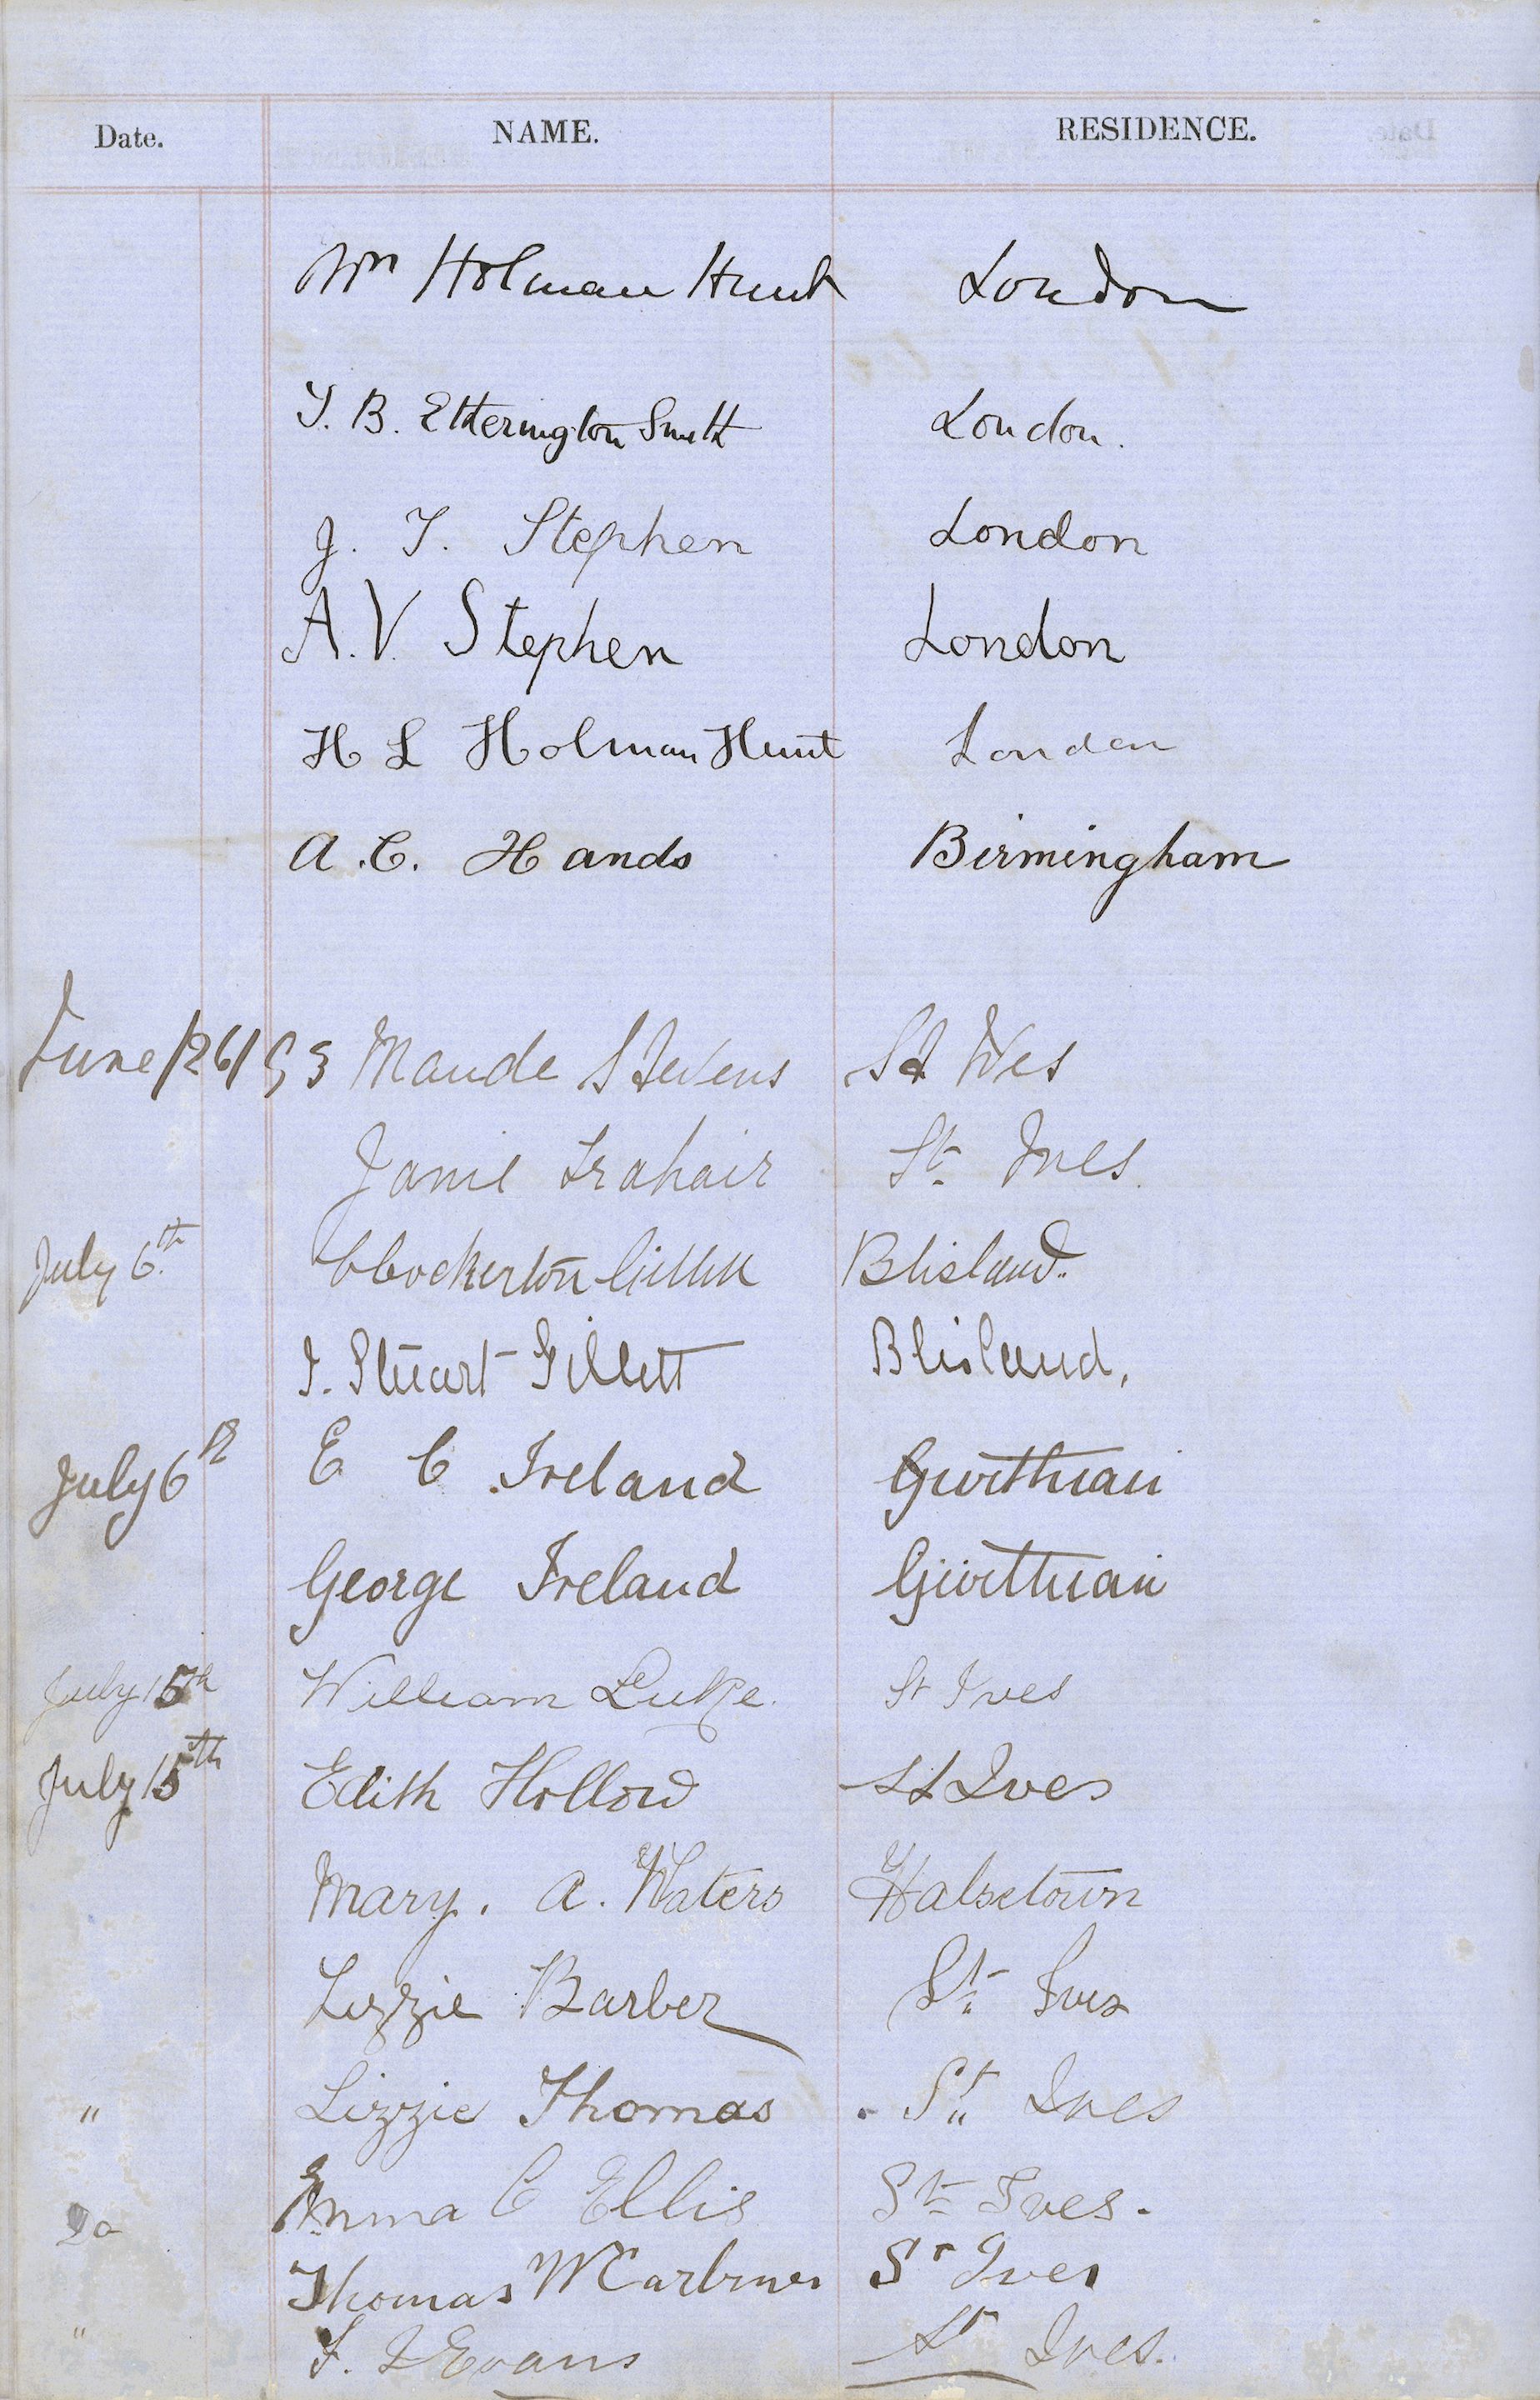 Date. NAME. RESIDENCE.
Wm Holman Hunt London
T. B. Etherington Smith London.
J. T. Stephen London
A. V. Stephen London
H L Holman Hunt London
A. C. Hands Birmingham
June/26/93 Maude Stevens St Ives
Janie Trahair St. Ives.
July 6th. Blisland.
J. Stuart Gillett Blisland,
July 6th E C Ireland Gwithian
George Ireland Gwithian
July 15th William Luke. St Ives
July 15th Edith Hollow St Ives
Mary. A. Waters Halsetown
Lizzie Barber St. Ives
" Lizzie Thomas St" Ives
Do Emma C Ellis St= Ives.
Thomas St Ives
" F. J Evans St Ives.